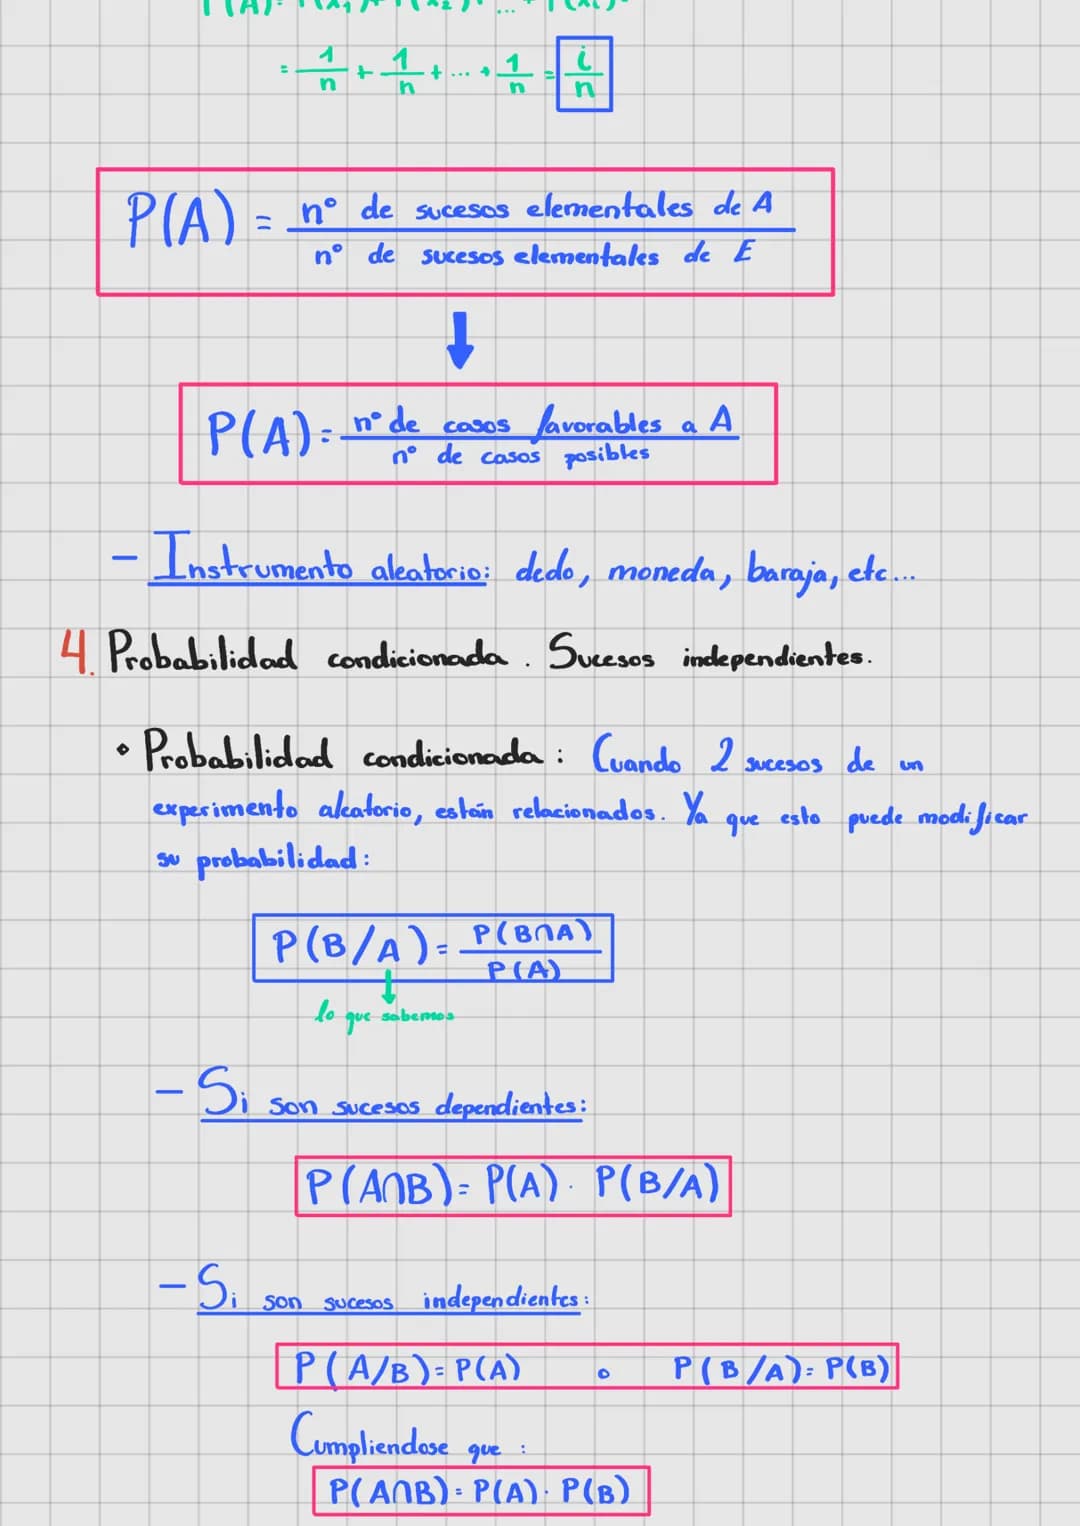 P(A)= P(x₁)+P(x₂)+...+P(xᵢ)=
= 1/n + 1/n + ... + 1/n = i/n
P(A) = nº de sucesos elementales de A / nº de sucesos elementales de E
P(A)= nº de casos favorables a A / nº de casos posibles
- Instrumento aleatorio: dedo, moneda, baraja, etc...
4. Probabilidad condicionada. Sucesos independientes.
• Probabilidad condicionada: Cuando 2 sucesos de un
experimento aleatorio, están relacionados. Ya que esto puede modificar
su probabilidad:
P(B/A)= P(B∩A) / P(A)
lo que sabemos
- Si son sucesos dependientes:
P(A∩B)= P(A) · P(B/A)
- Si son sucesos independientes:
P(A/B)= P(A) o P(B/A)= P(B)
Cumpliendose que :
P(A∩B)= P(A) · P(B)